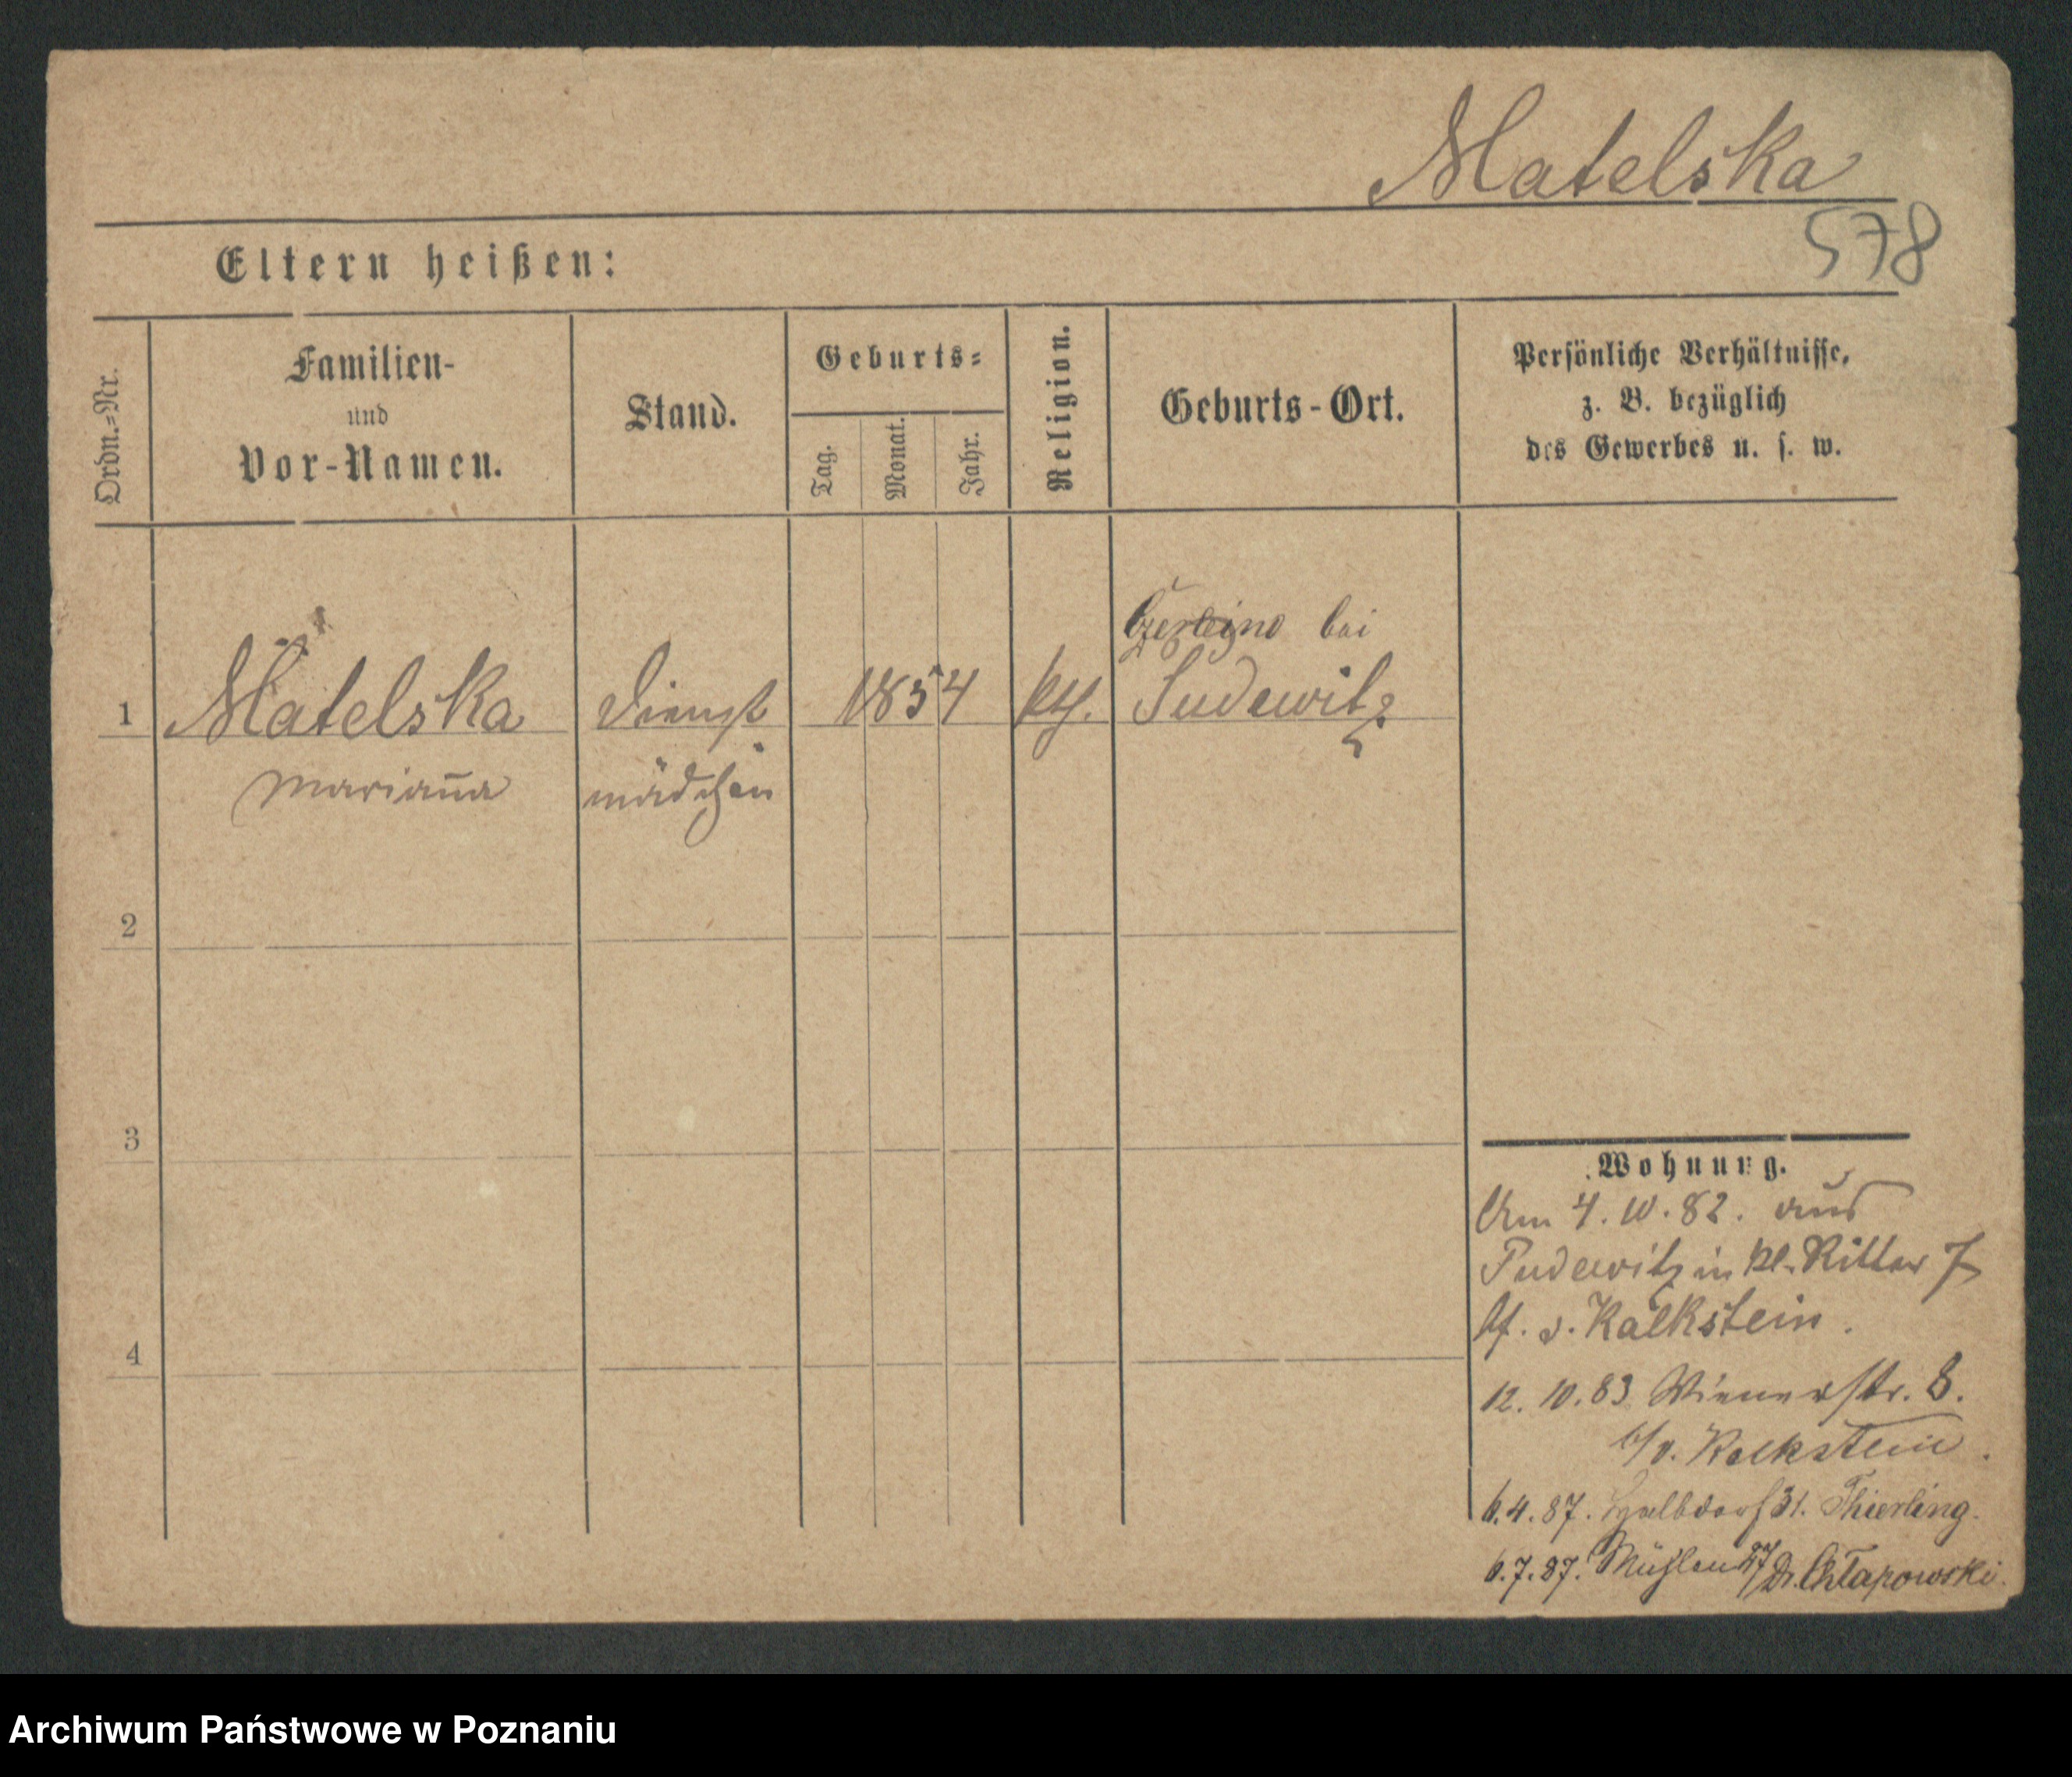 Matelska
578
Eltern heißen:
Ordn.=Nr.
Familien-
und
Vor-Namen.
Stand.
Geburts=
Tag.
Monat.
Jahr.
Religion.
Geburts-Ort.
Persönliche Verhältnisse,
z. B. bezüglich
des Gewerbes u. s. w.
bei
1 Matelska Dienst 1854 kth. Pudewitz
Marian̄a mädchen
2
3
4
Wohnung.
Am 4.10.82. aus
Pudewitz in Kl. Ritter 7
bf. v. Kalkstein.
12.10.83 Wienerstr. 8.
b/v. Kalkstein.
6.4.87. Halbdorf 31. Thierling.
6.7.87. Mühlen 27 Dr. Chłapowski.
Archiwum Państwowe w Poznaniu